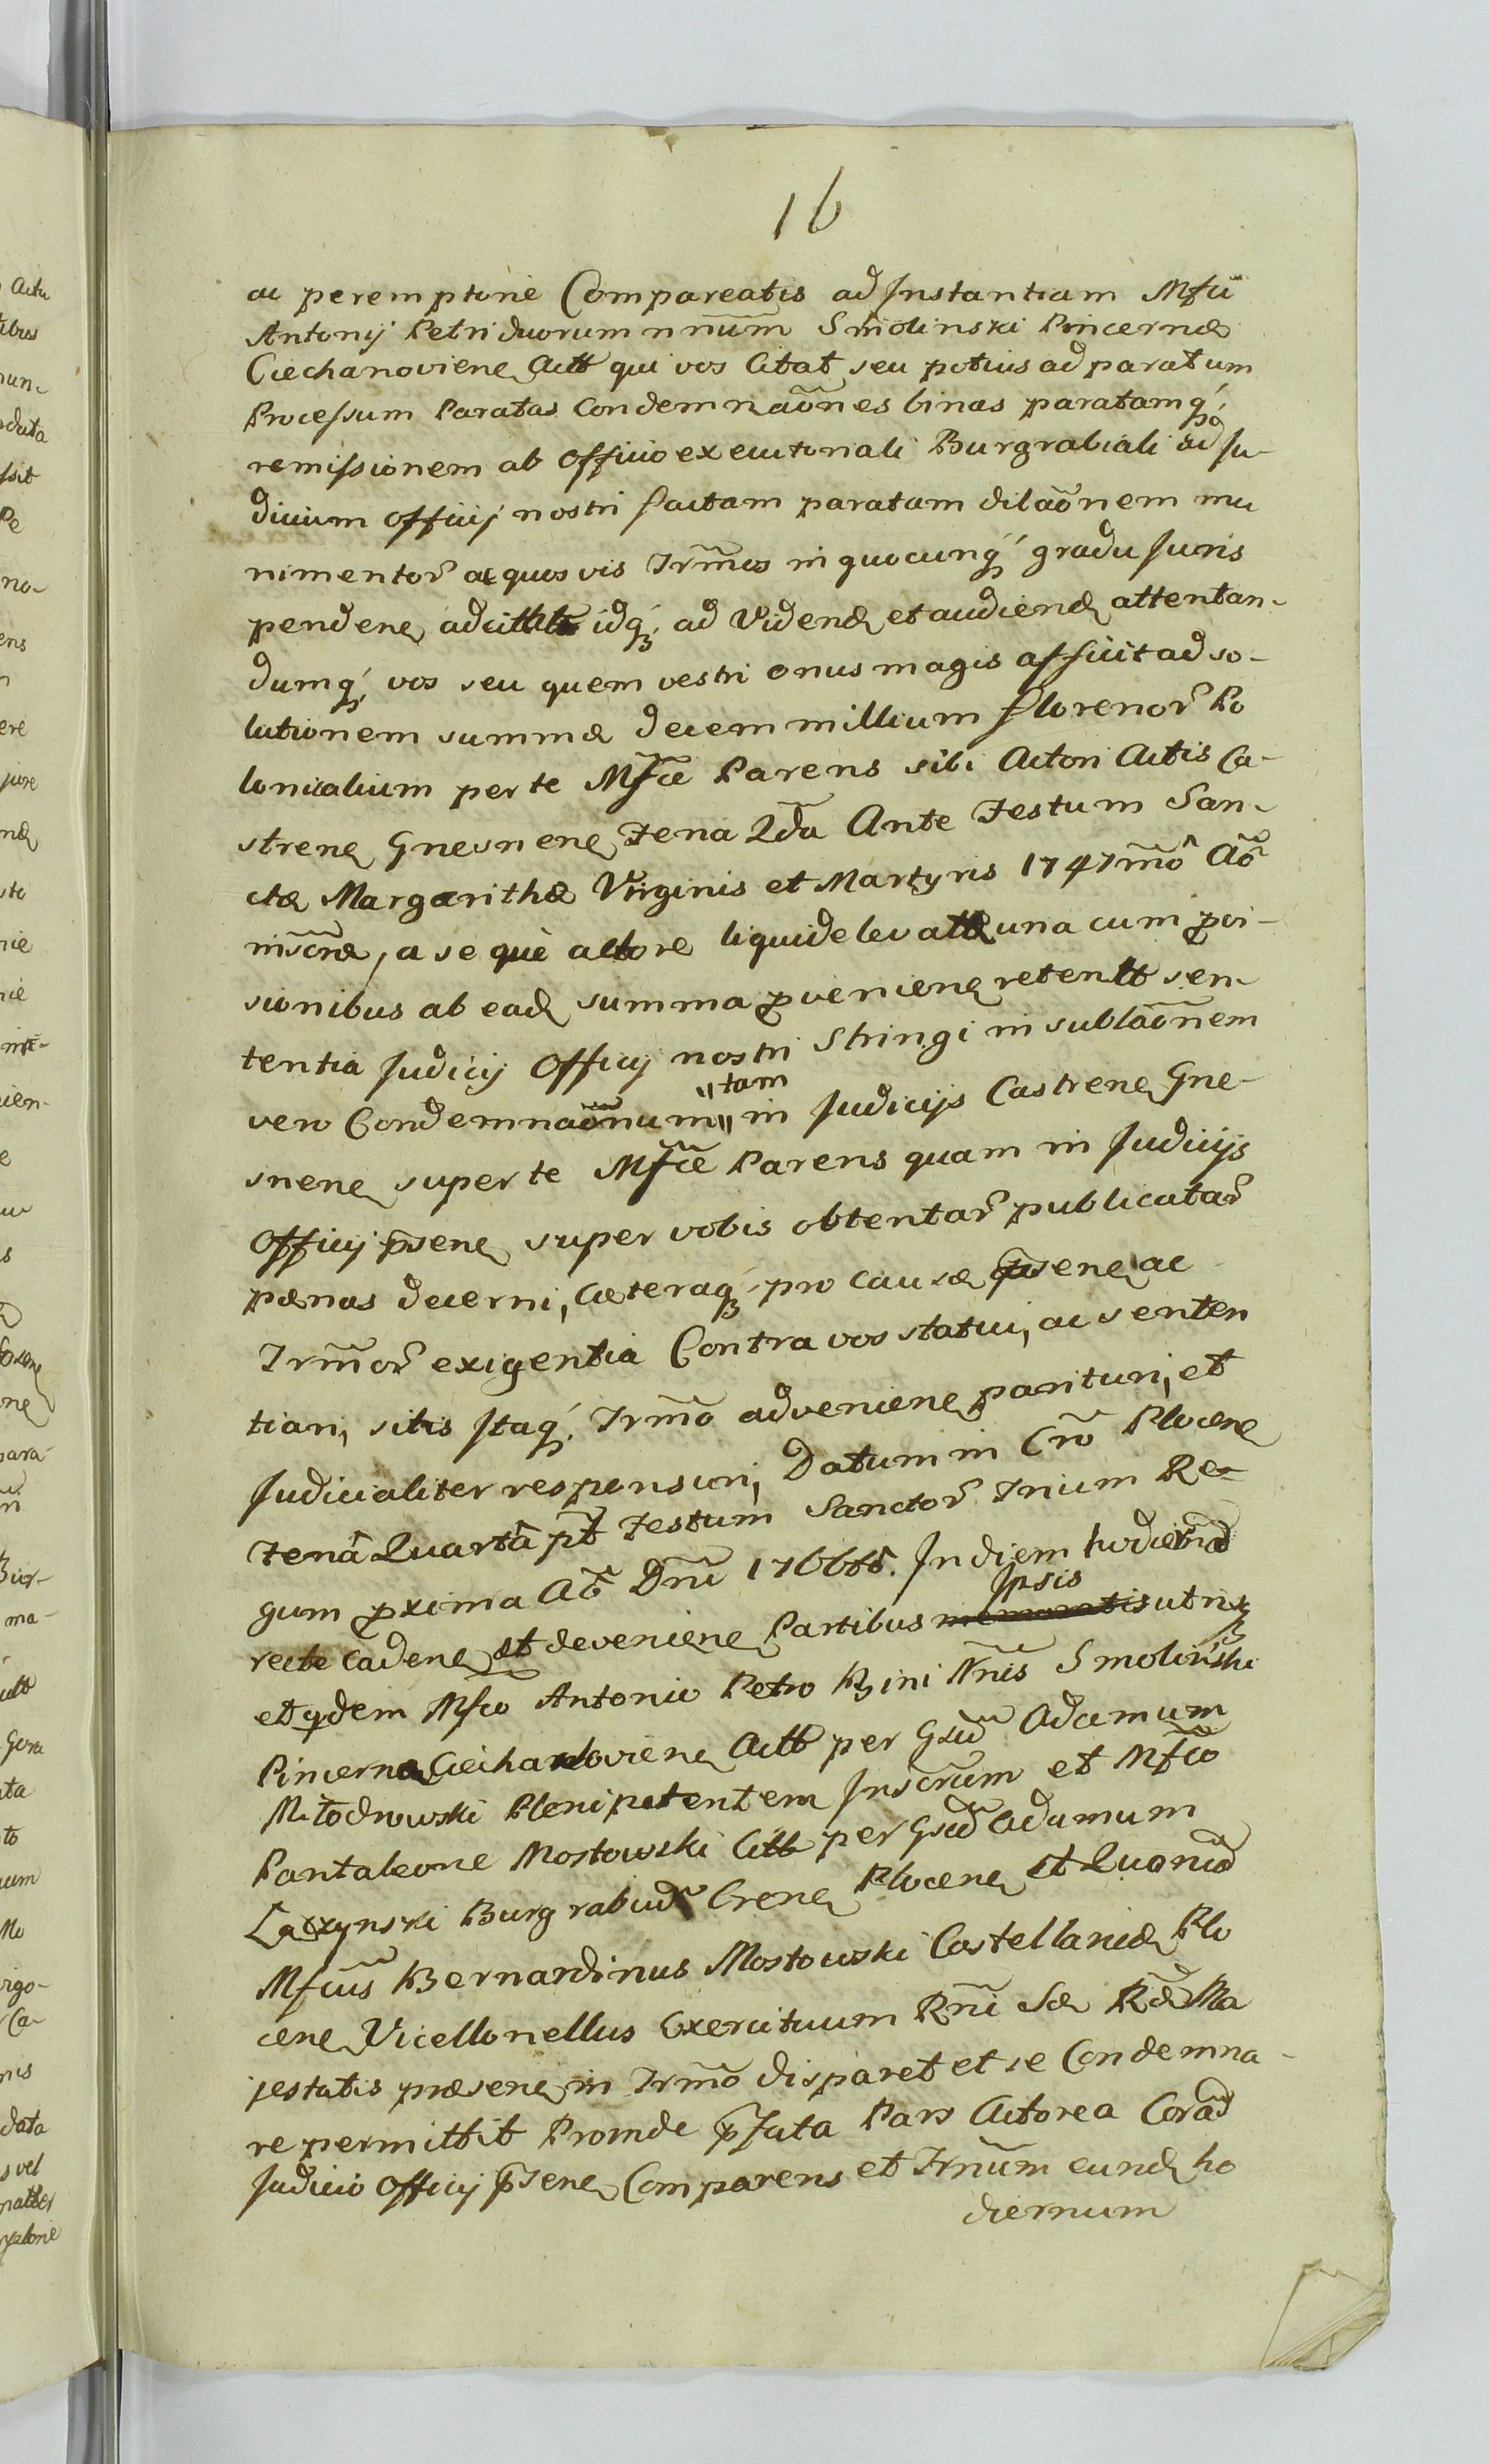 16
ac peremptorie Compareatis ad Instantiam Mfci
Antonij Petri duorum nnūm Smolinski Pincernæ
Ciechanoviene Actt qui vos Citat seu potius ad paratum
Processum Paratas Condemnaōnes binas paratamq́
remissionem ab Officio executoriali Burgrabiali ad Ju-
dicium Officij nostri factam paratam dilaōnem mu
nimentor̄ ac quosvis Trm̄os in quocunq́ gradu Juris
pendene adcitt idq́ ad Videnđ et audienđ attentan-
dumq́ vos seu quem vestri onus magis afficit ad so-
lutionem summæ decem millium florenor̄ Po
lonicalium per te Mfce Parens sibi Actori Actis Ca-
strene Gnesnene Feria 2da Ante Festum San-
ctæ Margarithæ Virginis et Martyris 1747mō Aō
inscræ, a se què actore liquide levattæ una cum pvi-
sionibus ab eađ summa pveniene retentt sen-
tentia Judicij Officij nostri Stringi in sublaōnem
vero Condemnaōnum "tam" in Judicijs Castrene Gne-
snene super te Mfce Parens quam in Judicijs
Officij p̄sene super vobis obtentar̄ publicatar̄
pænas decerni, Cæteraq́ pro causæ p̄sene ac
Trm̄or̄ exigentia Contra vos statui, ac senten
tiari, sitis Itaq́ Trm̄o adveniene parituri, et
Judicialiter responsuri, Datum in Crō Plocene
Feriâ Quartâ p̄t Festum Sanctor̄ Trium Re-
gum pxima Aō Dn̄i 1766to. In diem hodiernā
recte cadene et deveniene Partibus Ipsis utrisq́
et qdem Mfco Antonio Petro Bini Nn̄is Smolinski
Pincerna Ciechanoviene Actt per Gsū Adamum
Młodnowski Plenipotentem Inscrum et Mfco
Pantaleone Mostowski Citt per Gsū Adamum
Łaczynski Burgrabiū Crene Plocene et Quoniā
Mfcus Bernardinus Mostowski Castellanidæ Plo
cene Vicellonellus Exercituum Rn̄i Sæ Ræ Ma
jestatis præsene in Trm̄o disparet et se Condemna-
re permittit Proinde p̄fata Pars Actorea Corā
Judicio Officij p̄sene Comparens et Trm̄um eunđ ho
diernum